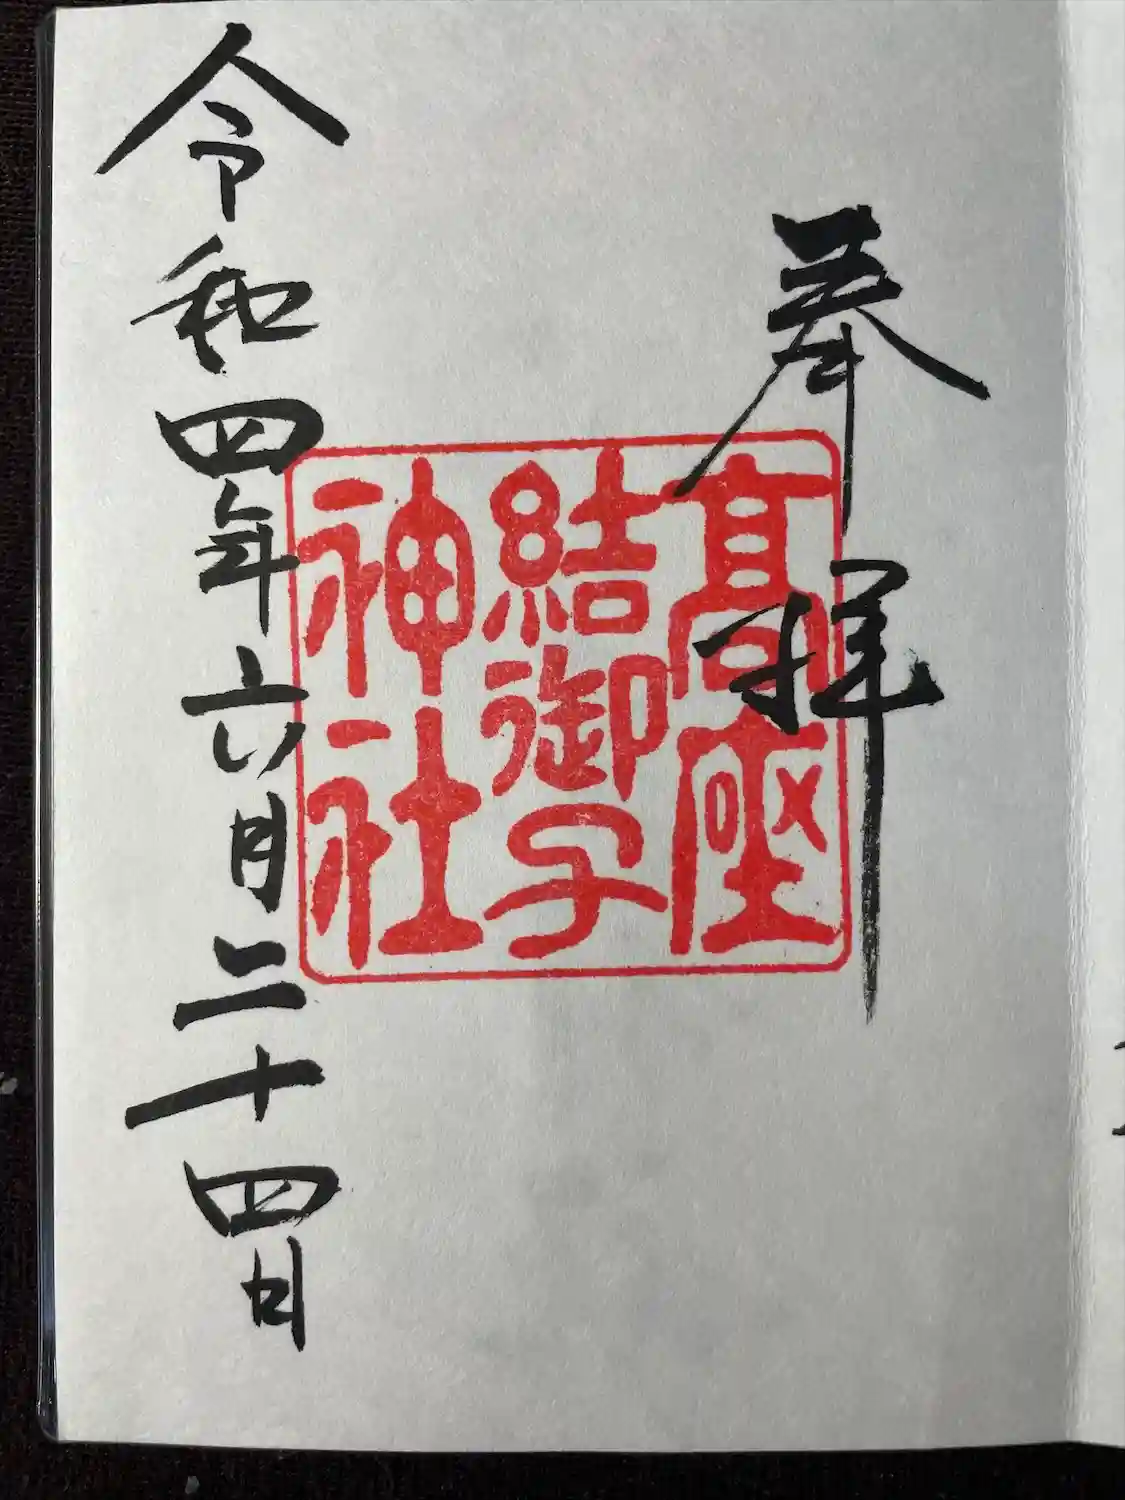 奉拝
高座
結御子
神社
令和四年六月二十四日